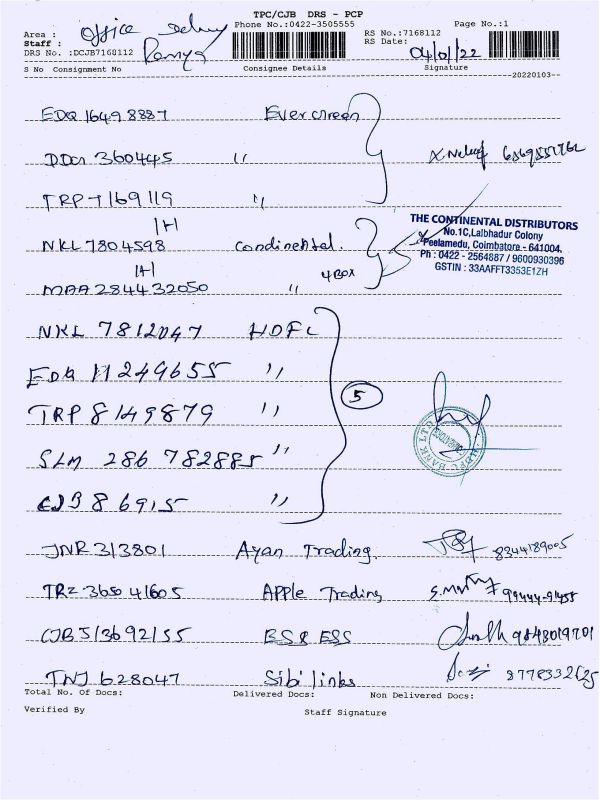 TPC/CJB DRS - PCP
Area : office
Phone No.:0422-3505555
Page No.:1
Staff : Ramya
RS No.:7168112
DRS No. :DCJB7168112
RS Date: 04/01/22
S No Consignment No Consignee Details Signature
20220103
EDQ 16498887 Ever Green
DDM 360445 "
TRP 7169119 "
THE CONTINENTAL DISTRIBUTORS
No.1C,Lalbhadur Colony
Peelamedu, Coimbatore - 641004.
Ph : 0422 - 2564887 / 9600930396
GSTIN : 33AAFFT3353E1ZH
1H
NKL 7804598 Condinental.
1H
MAA 284432050 " 4 Box
NKL 7812047 HDFC
EDQ 11249655 "
5
TRP 8149879 "
HDFC BANK LTD
SLM 286 782885 "
CJB 86915 "
JNR 313801 Ayan Trading. 8344189005
TRZ 365041605 Apple Trading 99444-91455
CJB 513692155 BS & ESS 9843019701
TNJ 628047 Sibi links
Total No. Of Docs: Delivered Docs: Non Delivered Docs:
Verified By Staff Signature